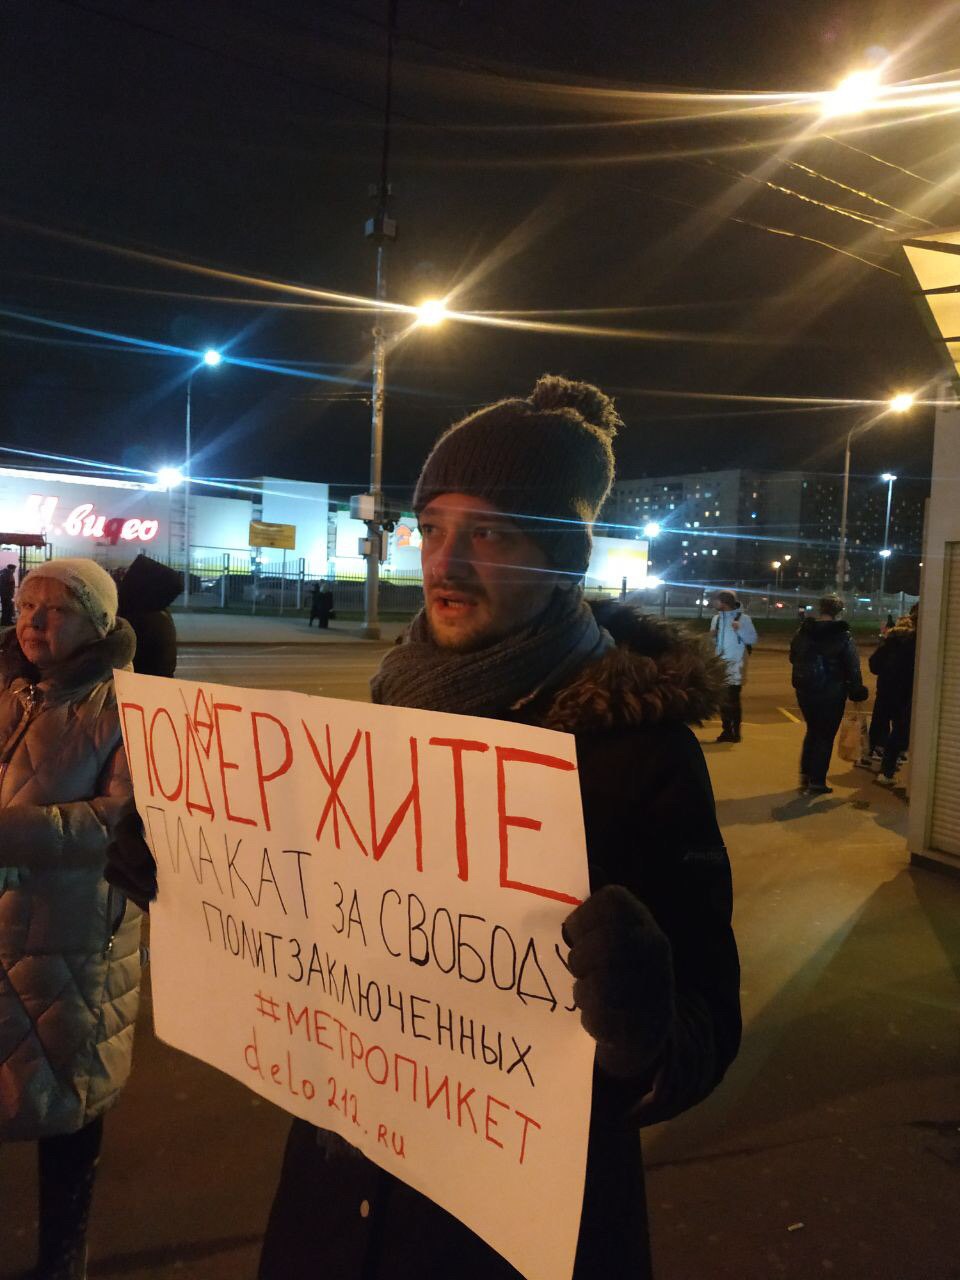 М.видео
ПОДДЕРЖИТЕ
ПЛАКАТ ЗА СВОБОДУ
ПОЛИТЗАКЛЮЧЕННЫХ
#МЕТРОПИКЕТ
delo212.ru